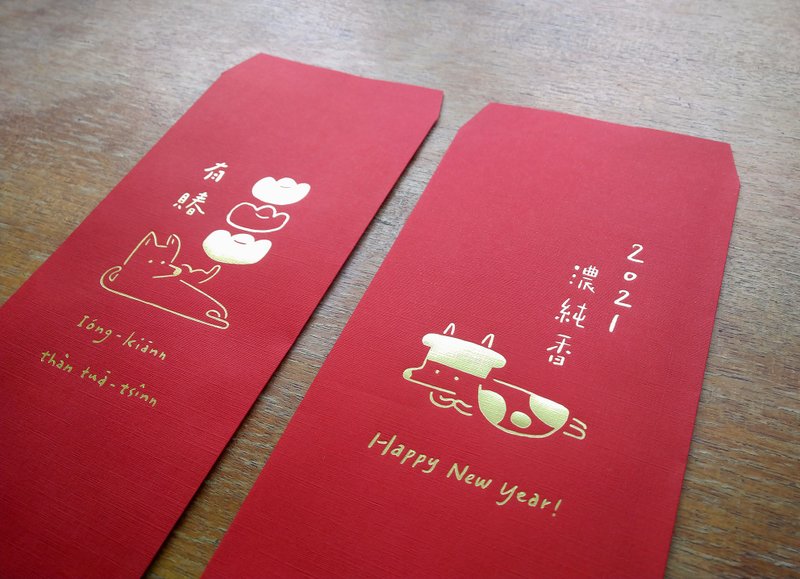 有
賰
Ióng-kiānn
thàn tuā-tsînn
2021
濃純香
Happy New Year!